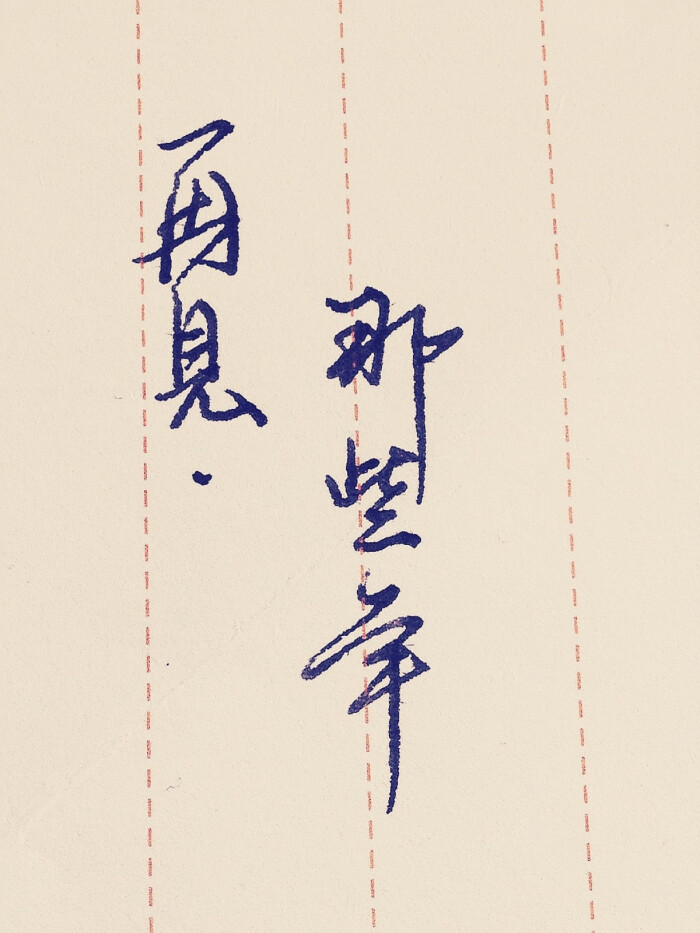 那些年
再見.